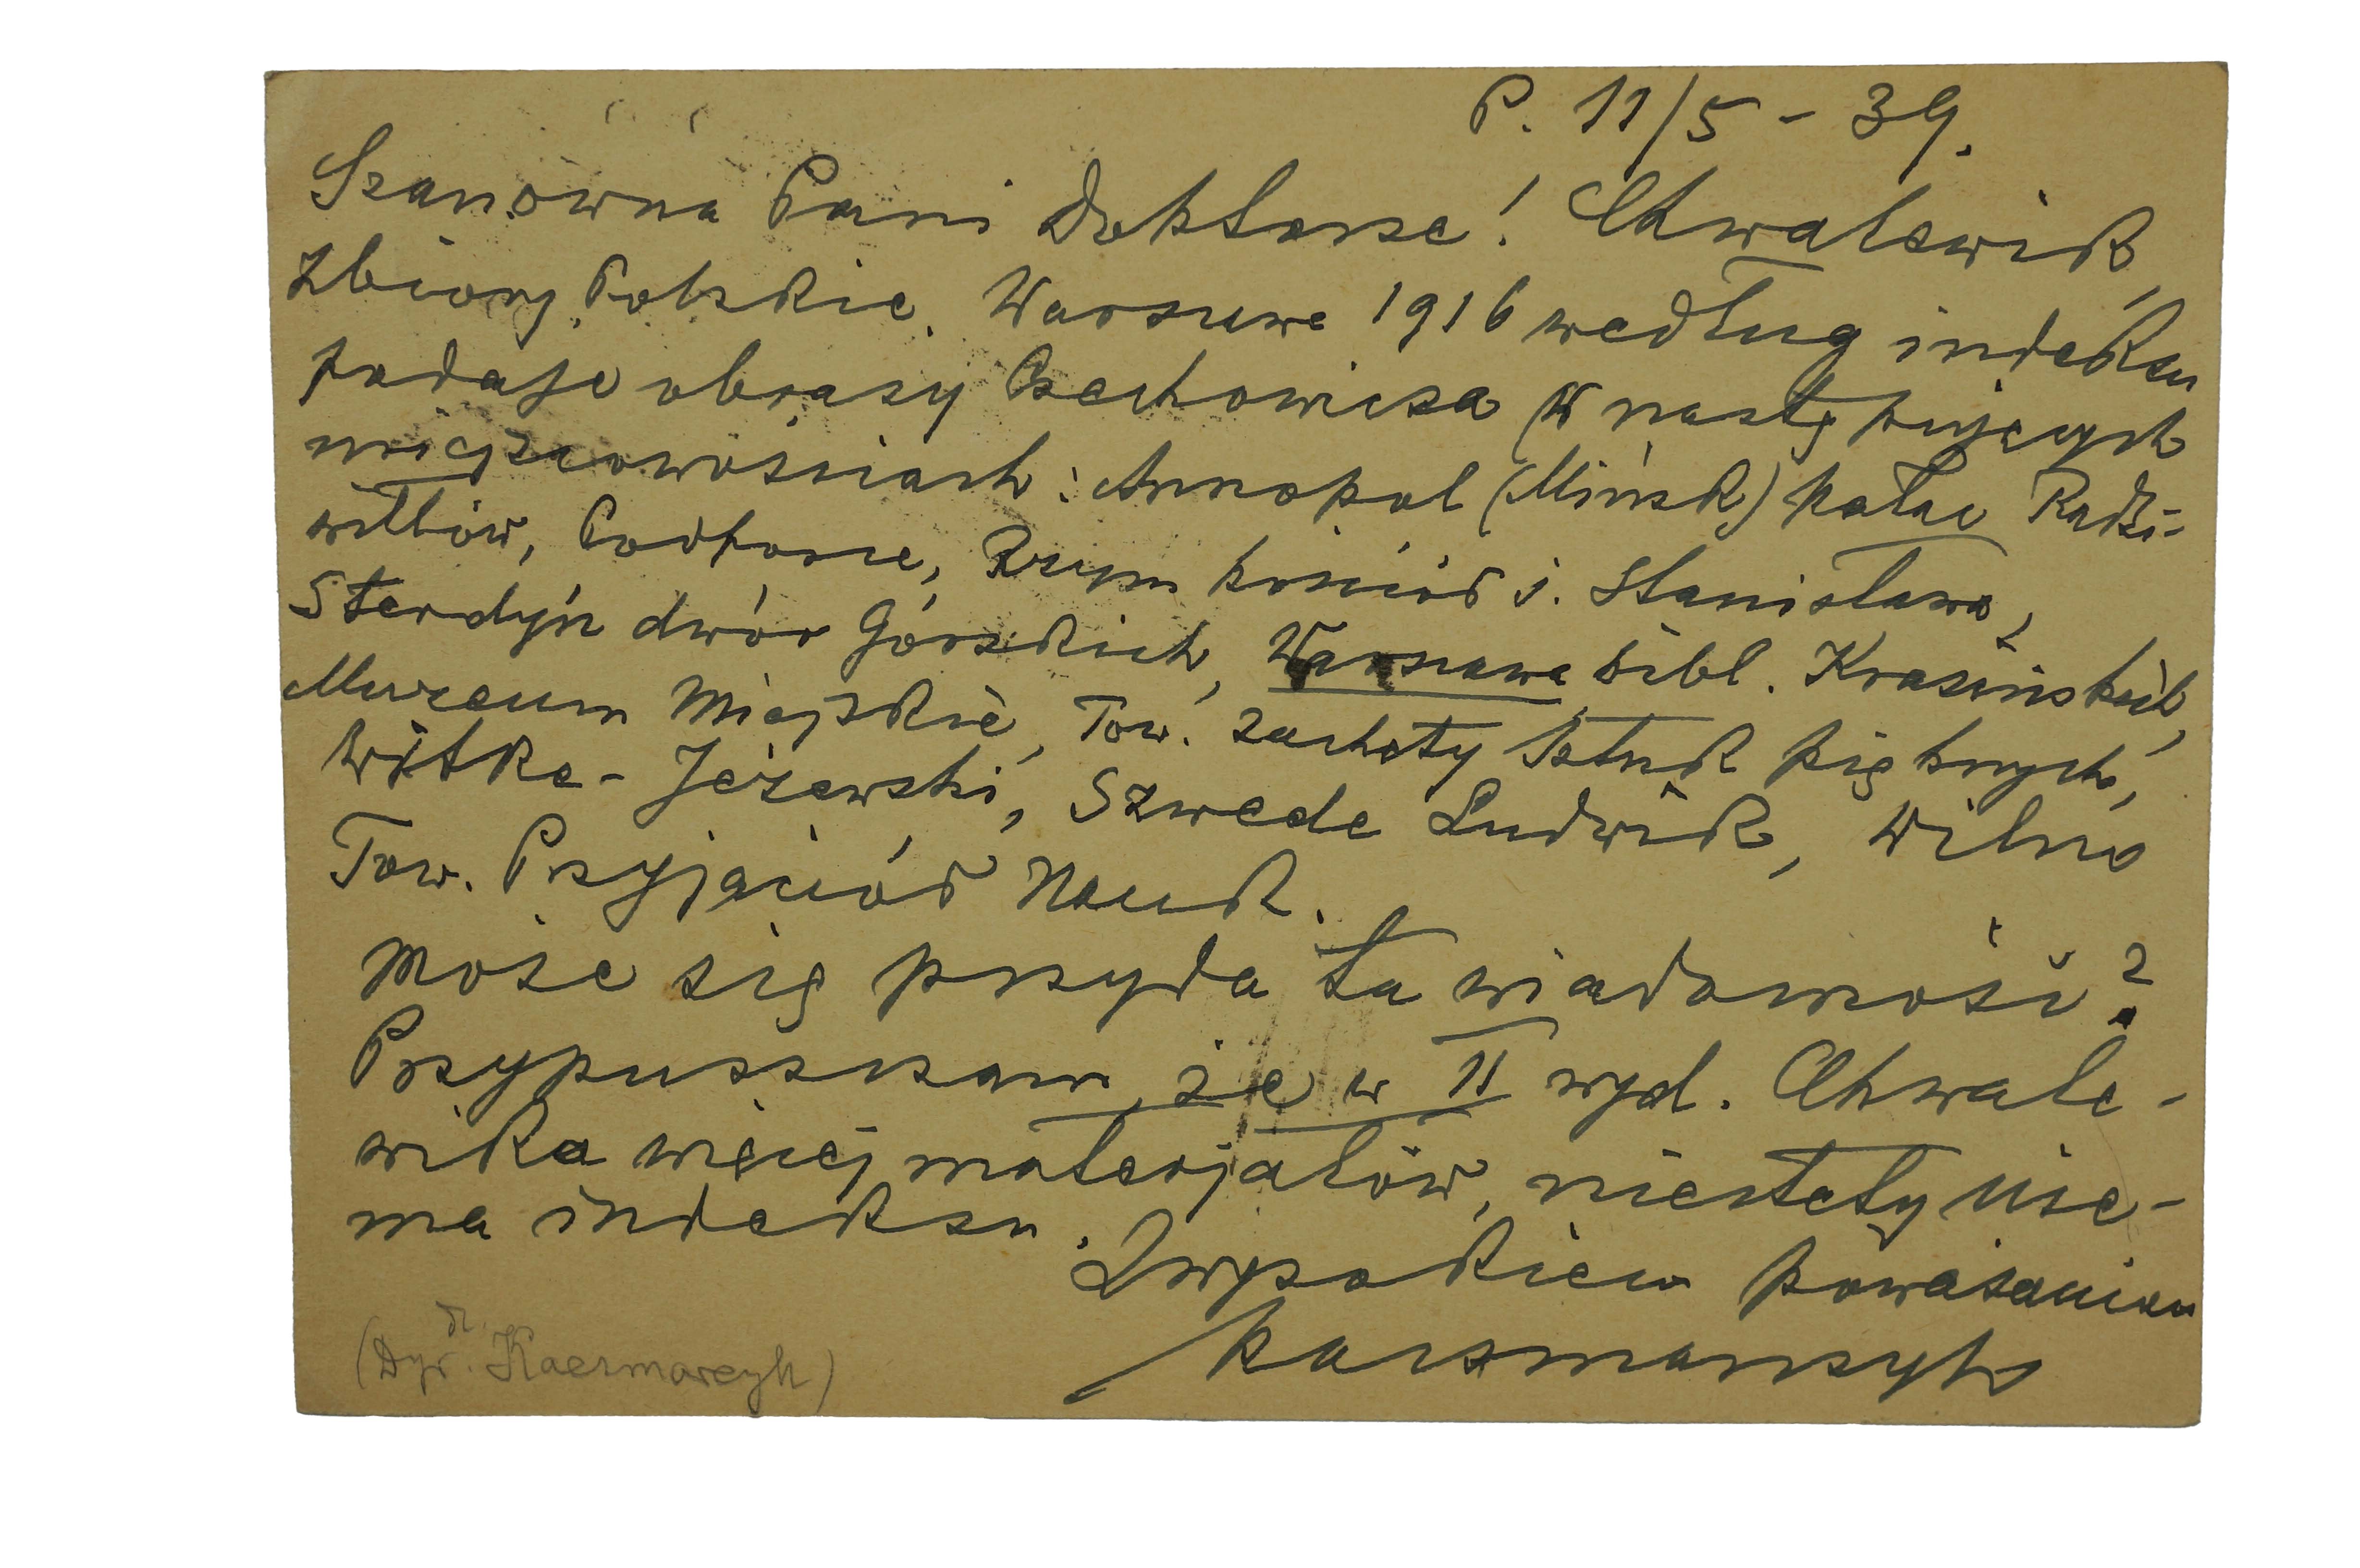 P. 11/5 - 39.
Szanowna Pani Doktorze! Chwalewik,
Zbiory Polskie. Warszawa 1916 według indeksu
podaje obrazy Czechowicza w następujących
miejscowościach: Annopol (Mińsk) pałac Radzi-
wiłłów, Podhorce, Rzym kościół ś. Stanisława,
Sterdyń dwór Górskich, Warszawa bibl. Krasińskich,
Muzeum Miejskie, Tow. Zachęty Sztuk pięknych,
Witke-Jeżewski, Szwede Ludwik, Wilno
Tow. Przyjaciół Nauk.
Może się przyda ta wiadomość?
Przypuszczam, że w II wyd. Chwale-
wika więcej materjałów, niestety nie-
ma indeksu.
Z wysokiem poważaniem
Kaczmarczyk
(Dyr. dr. Kaczmarczyk)